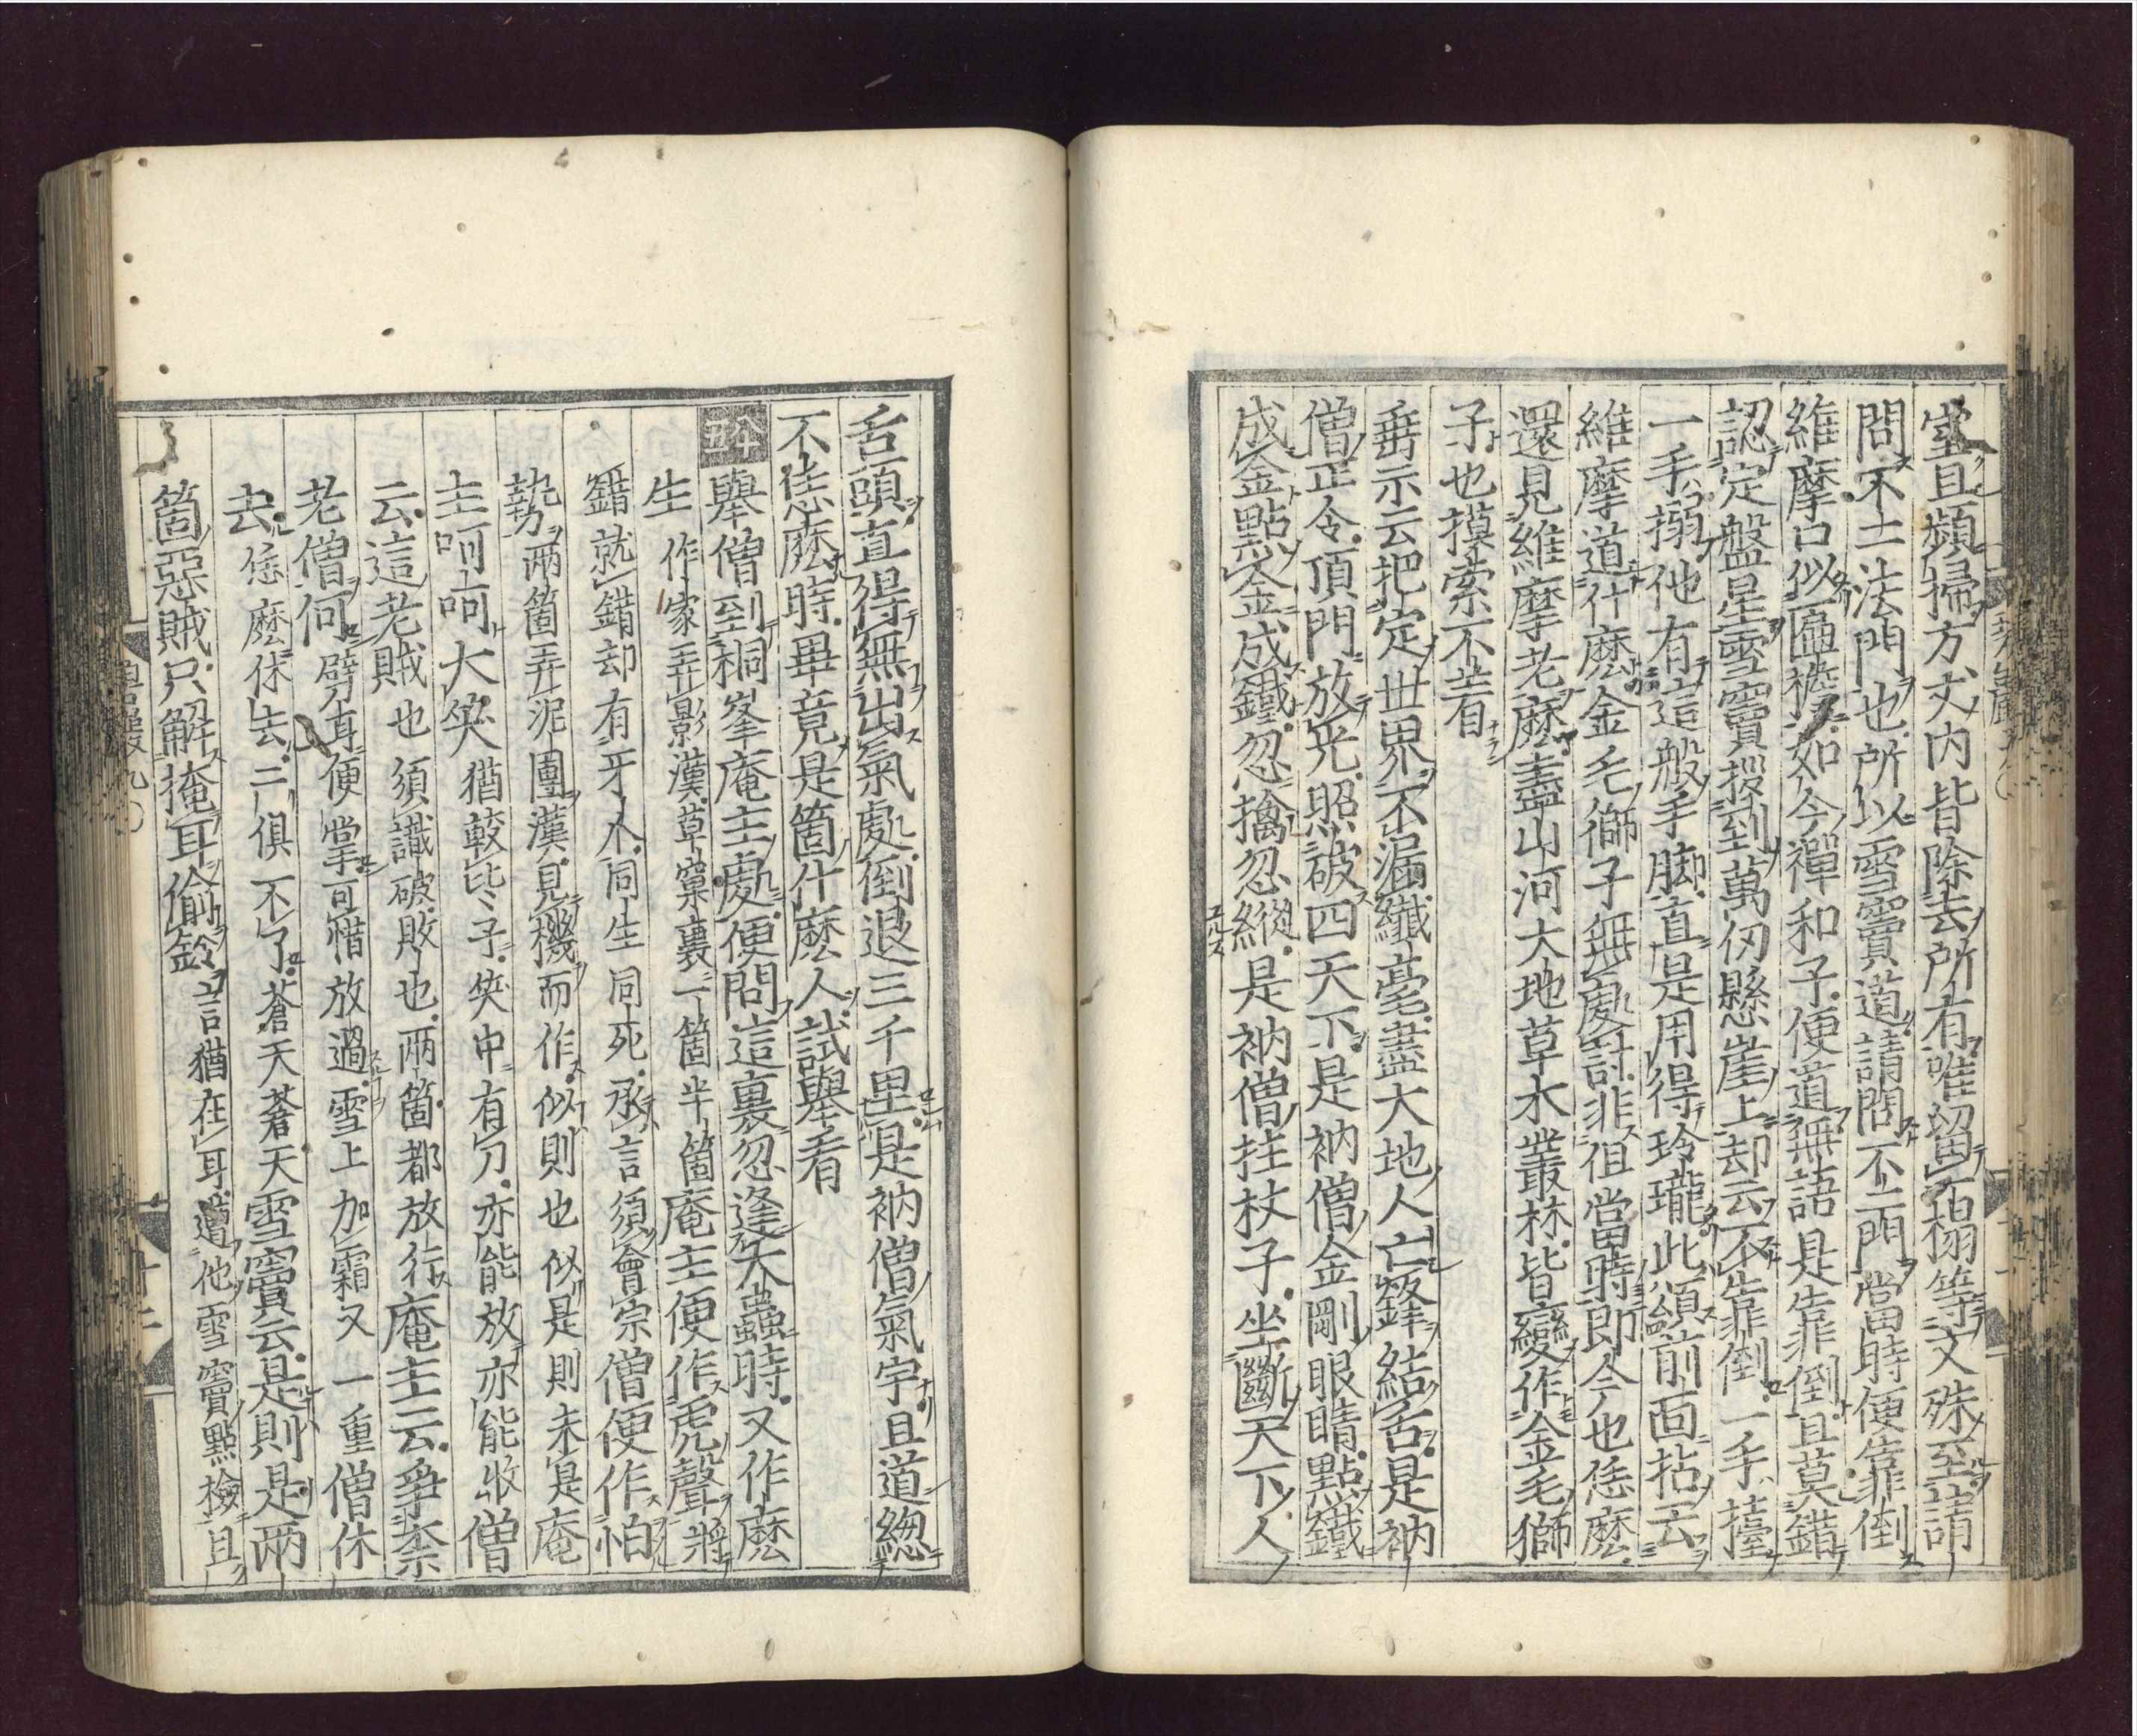 室且頻掃方丈內皆除去所有唯留一榻等文殊至請
問不二法門也所以雪竇道請問不二門當時便靠倒
維摩口似匾檐如今禪和子便道無語是靠倒且莫錯
認定盤星雪竇拶到萬仞懸崖上却云不靠倒一手擡
一手搦他有這般手脚直是用得玲瓏此頌前面拈云
維摩道什麼金毛獅子無處討非但當時即今也恁麼
還見維摩老麼盡山河大地草木叢林皆變作金毛獅
子也摸索不著
垂示云把定世界不漏纖毫盡大地人亡鋒結舌是衲
僧正令頂門放光照破四天下是衲僧金剛眼睛點鐵
成金點金成鐵忽擒忽縱是衲僧拄杖子坐斷天下人
舌頭直得無出氣處倒退三千里是衲僧氣宇且道總
不恁麼時畢竟是箇什麼人試舉看
舉僧到桐峯庵主處便問這裏忽逢大蟲時又作麼
生 作家弄影漢草窠裏一箇半箇 庵主便作虎聲 將
錯就錯却有牙爪同生同死承言須會宗 僧便作怕
勢 兩箇弄泥團漢見機而作似則也似是則未是 庵
主呵呵大笑 猶較些子笑中有刀亦能放亦能收 僧
云這老賊 也須識破敗也兩箇都放行 庵主云爭奈
老僧何 劈耳便掌可惜放過雪上加霜又一重 僧休
去 恁麼休去二俱不了蒼天蒼天 雪竇云是則是兩
箇惡賊只解掩耳偷鈴 言猶在耳遭他雪竇點檢且
碧巖九
十二